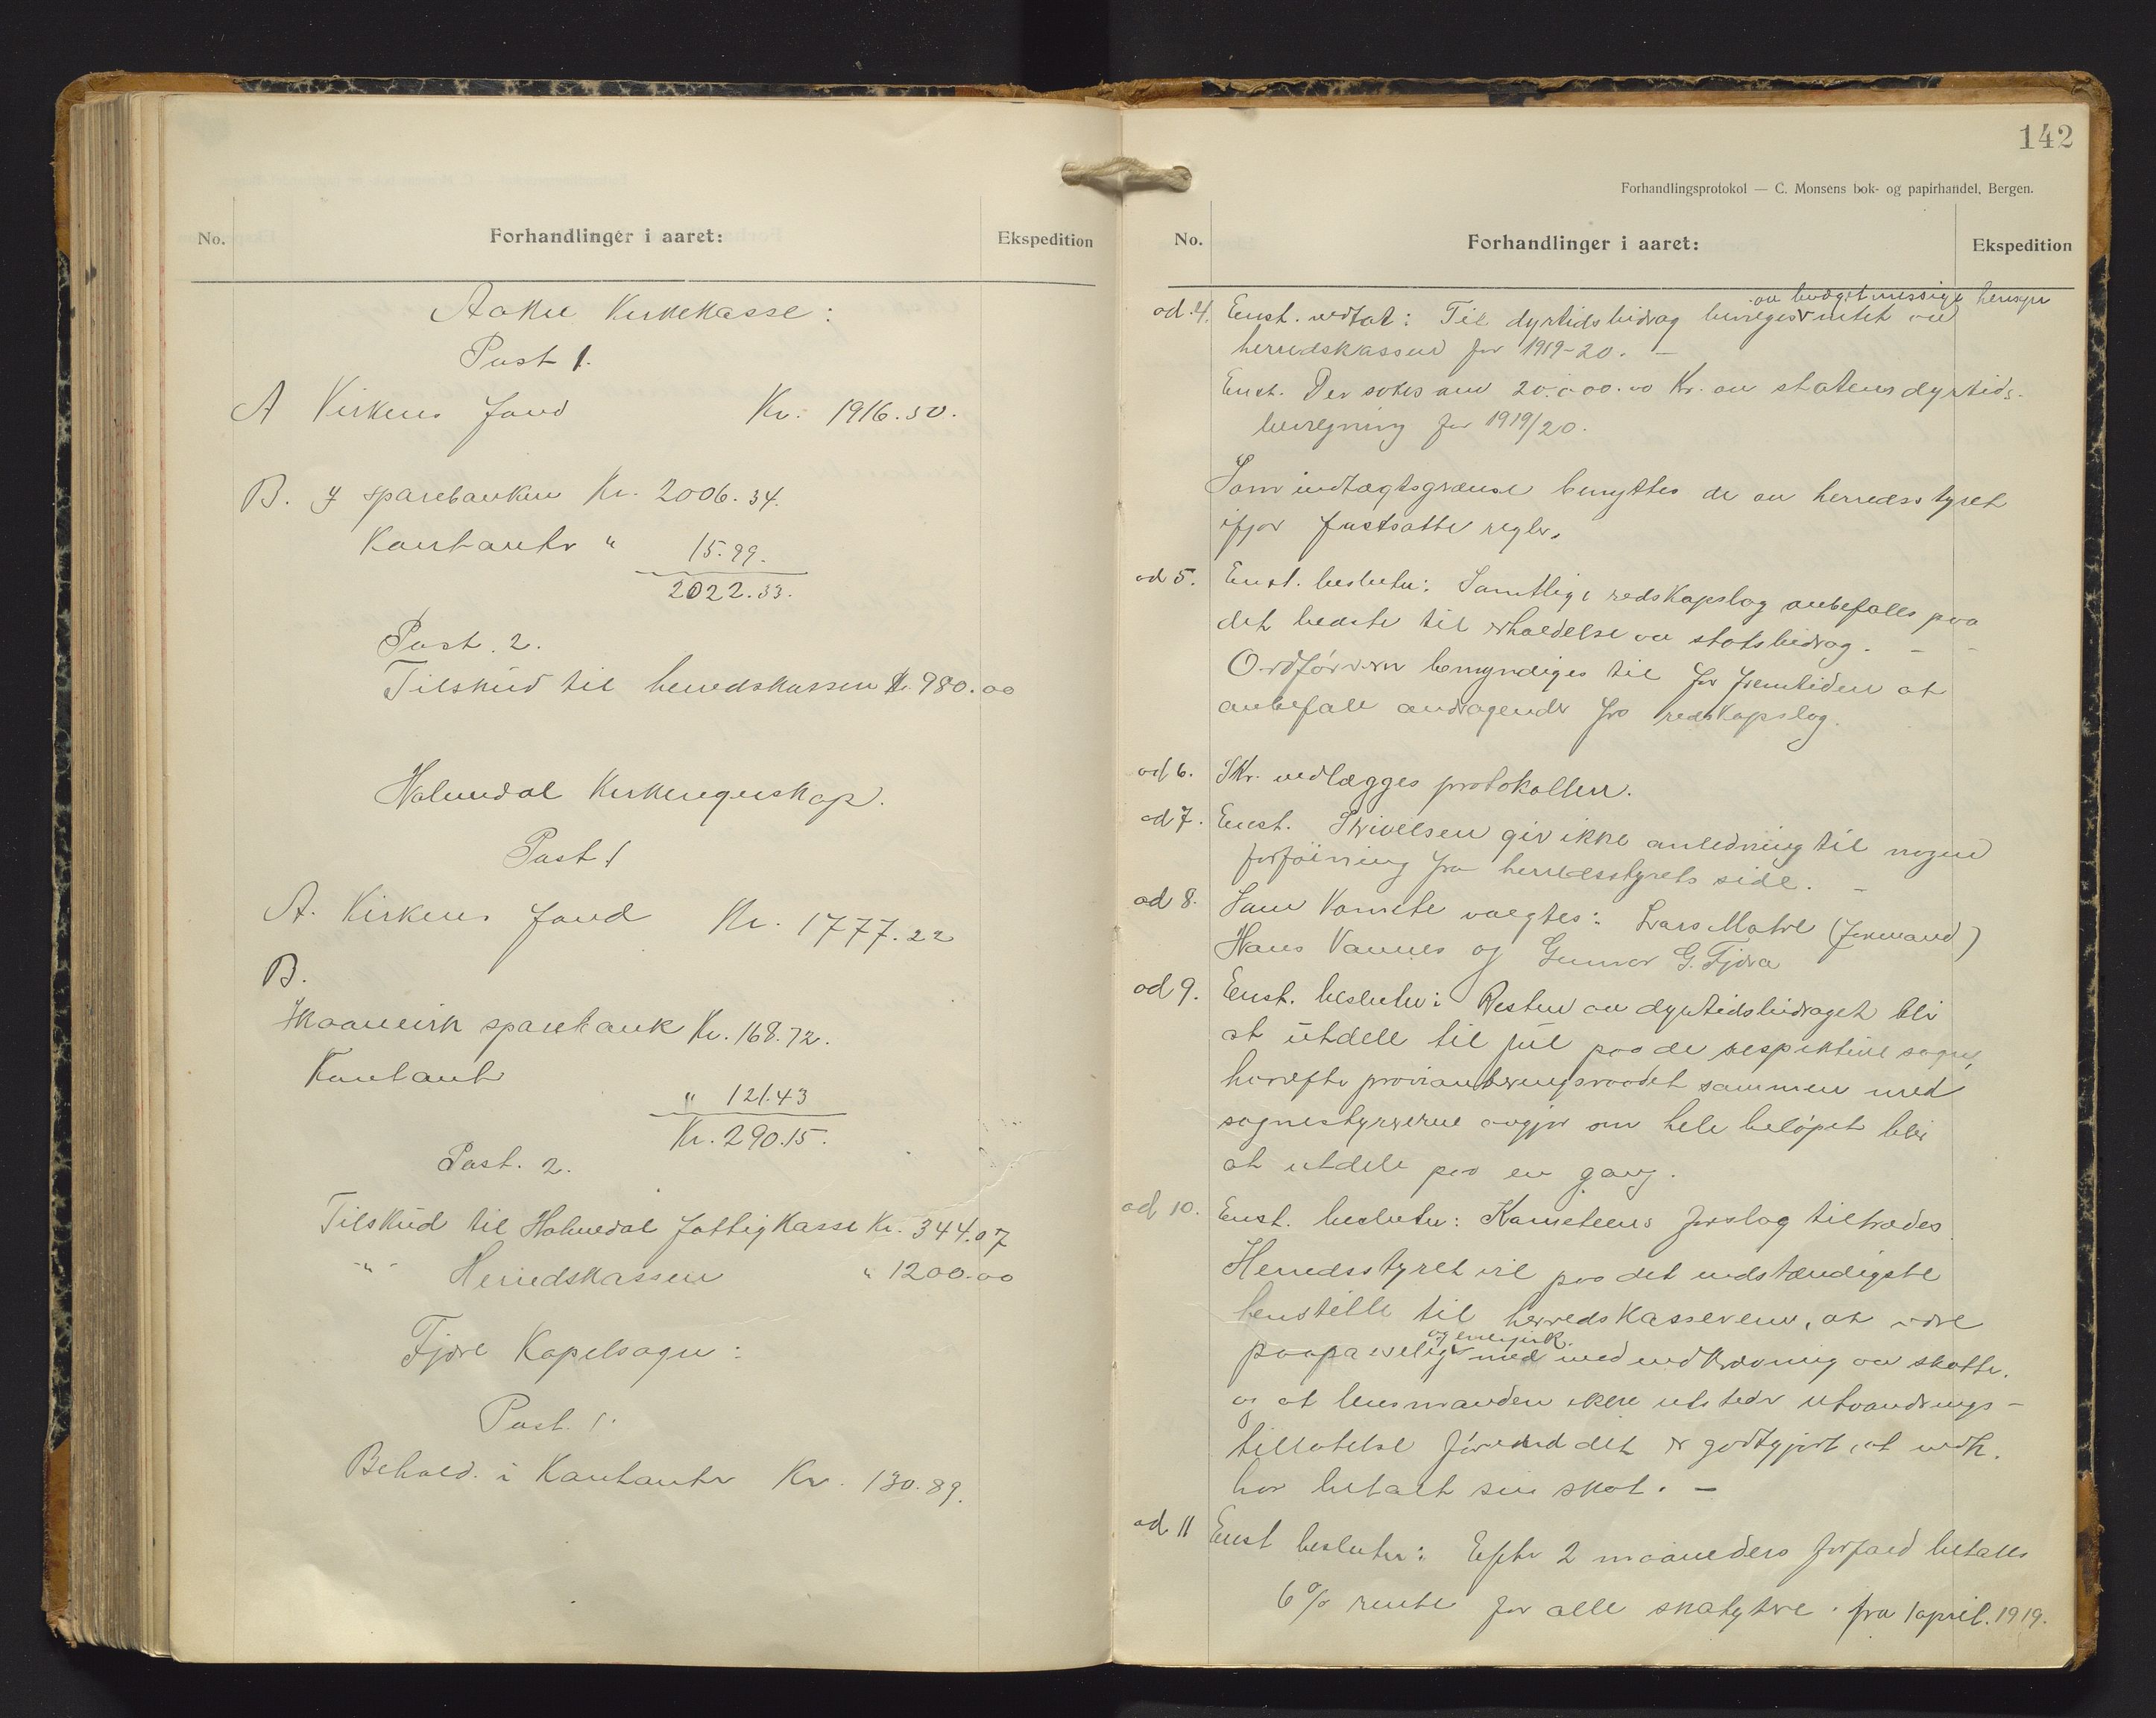 No.
Forhandlinger i aaret:
Ekspedition
Aakre Kirkekasse:
Post 1.
A Kirkens fond Kr. 1916.50.
B. I sparebanken Kr. 2006.34.
Kontanter " 15.99.
2022.33.
Post. 2.
Tilskud til herredskassen Kr. 980.00
Holmedal Kirkeregnskap.
Post 1
A. Kirkens fond Kr. 1777.22
B.
Skaanevik sparebank Kr. 168.72.
Kontant
" 121.43
Kr. 290.15.
Post. 2.
Tilskud til Holmedal fattigkasse Kr. 344.07
-"- Herredskassen " 1200.00
Fjære Kapelsogn:
Post. 1.
Behold. i Kontanter Kr. 130.89.
142
Forhandlingsprotokol — C. Monsens bok- og papirhandel, Bergen.
No.
Forhandlinger i aaret:
Ekspedition
av budgetmessige hensyn
ad. 4. Enst. vedtat: Til dyrtidsbidrag beviges intet av
herredskassen for 1919-20. —
Enst. Der søkes om 20.000.00 Kr. av statens dyrtids-
bevilgning for 1919/20.
Som indtægtsgrænse benyttes de av herredsstyret
ifjor fastsatte regler.
ad 5. Enst. beslutn: Samtlige redskapslag anbefales paa
det bedste til erholdelse av statsbidrag. — —
Ordføreren bemyndiges til for fremtiden at
anbefale andragender fra redskapslag.
ad 6. Skr. vedlægges protokollen.
ad 7. Enst. Skrivelsen gir ikke anledning til nogen
forføining fra herredsstyrets side. —
ad 8. Som Komite valgtes: Lars Matre (formand)
Hans Vannes og Gunnar G. Fjæra
ad 9. Enst. beslutn: Resten av dyrtidsbidraget blir
at utdele til jul paa de respektive sogne,
hvorefter provianteringsraadet sammen med
sognestyrerne avgjør om hele beløpet blir
at utdele paa en gang.
ad 10. Enst. beslutn: Komiteens forslag tiltrædes.
Herredsstyret vil paa det indstændigste
henstille til herredskassereren, at være
og energisk
paapasselig med indkrævning av skatter,
og at lensmanden ikke utsteder utvandrings-
tillatelse førend det er godtgjort, at vedk.
har betalt sin skat. —
ad 11 Enst beslutn: Efter 2 maaneders forfald betales
6% rente for alle skatytere fra 1 april. 1919.